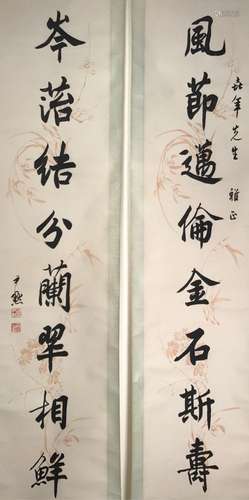 先生 雅正
風節邁倫金石斯壽
岑蕗結分蘭翠相鮮
尹默